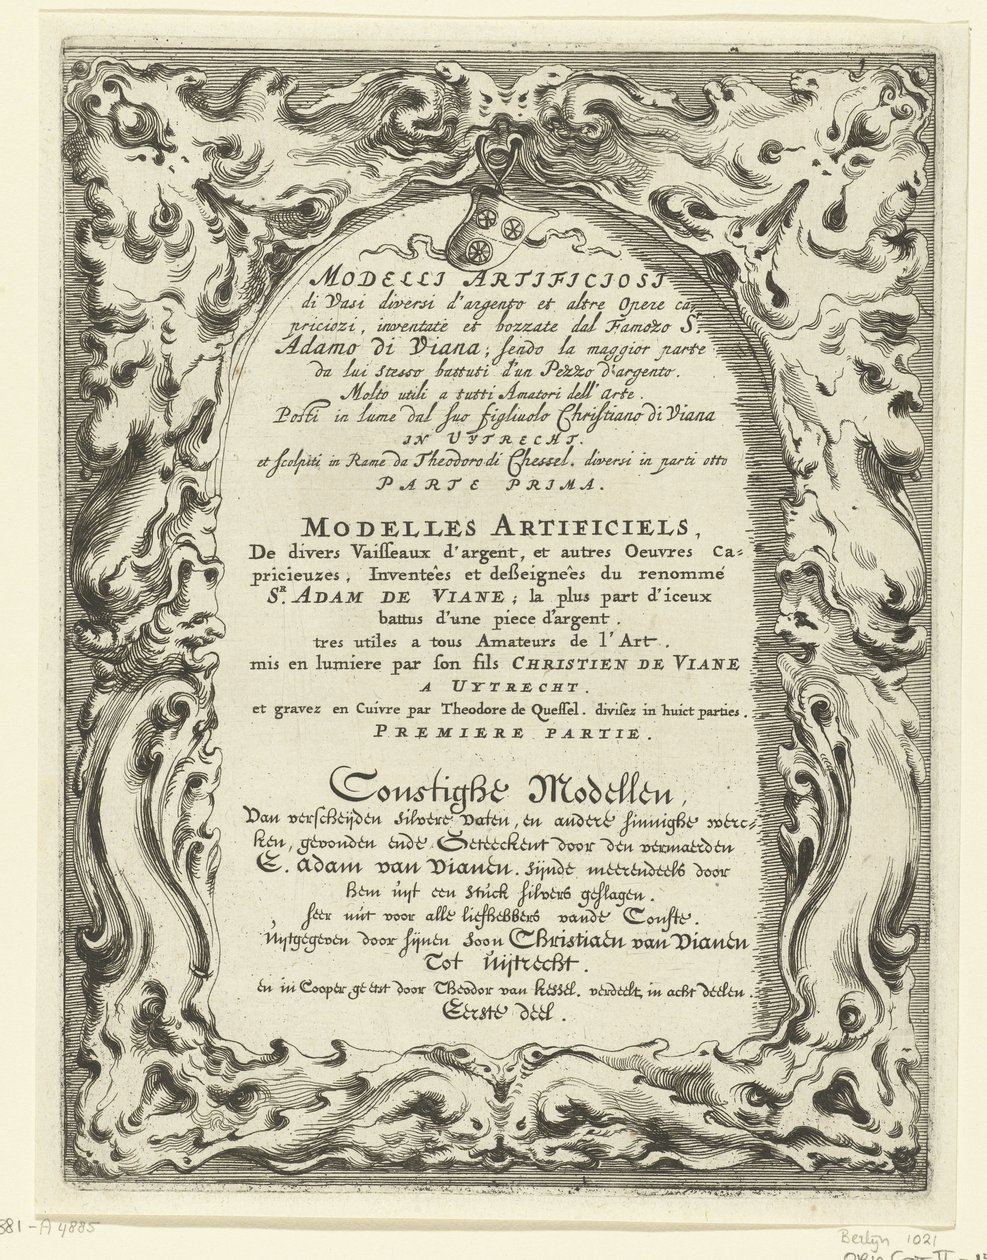 MODELLI ARTIFICIOSI
di Vasi diversi d'argento et altre Opere ca,
priciozi, inventate et bozzate dal Famozo Sr.
Adamo di Viana; ſendo la maggior parte
da lui stesso battuti d'un Pezzo d'argento.
Molto utili a tutti Amatori dell' Arte.
Poſti in lume dal ſuo figliuolo Chriſtiano di Viana
IN UYTRECHT.
et ſcolpiti in Rame da Theodoro di Cheſſel. diversi in parti otto
PARTE PRIMA.
MODELLES ARTIFICIELS,
De divers Vaiſſeaux d'argent, et autres Oeuvres Ca-
pricieuzes, Inventêes et deßeignêes du renommé
SR. ADAM DE VIANE; la plus part d'iceux
battus d'une piece d'argent.
tres utiles a tous Amateurs de l'Art.
mis en lumiere par ſon fils CHRISTIEN DE VIANE
A UYTRECHT.
et gravez en Cuivre par Theodore de Queſſel. divisez in huict parties.
PREMIERE PARTIE.
Constighe Modellen,
Van verscheijden silvere vaten, en andere sinnighe werc-
ken, gevonden ende Geteeckent door den vermaerden
E. adam van Vianen. sijnde meerendeels door
hem uijt een stuck silvers geslagen.
seer nut voor alle liefhebbers vande Conste.
Uijtgegeven door sijnen soon Christiaen van Vianen
Tot Uijtrecht.
en in Cooper ge etst door Theodor van kessel. verdeelt in acht deelen.
Eerste deel.
881-A4885
Berlijn 1021